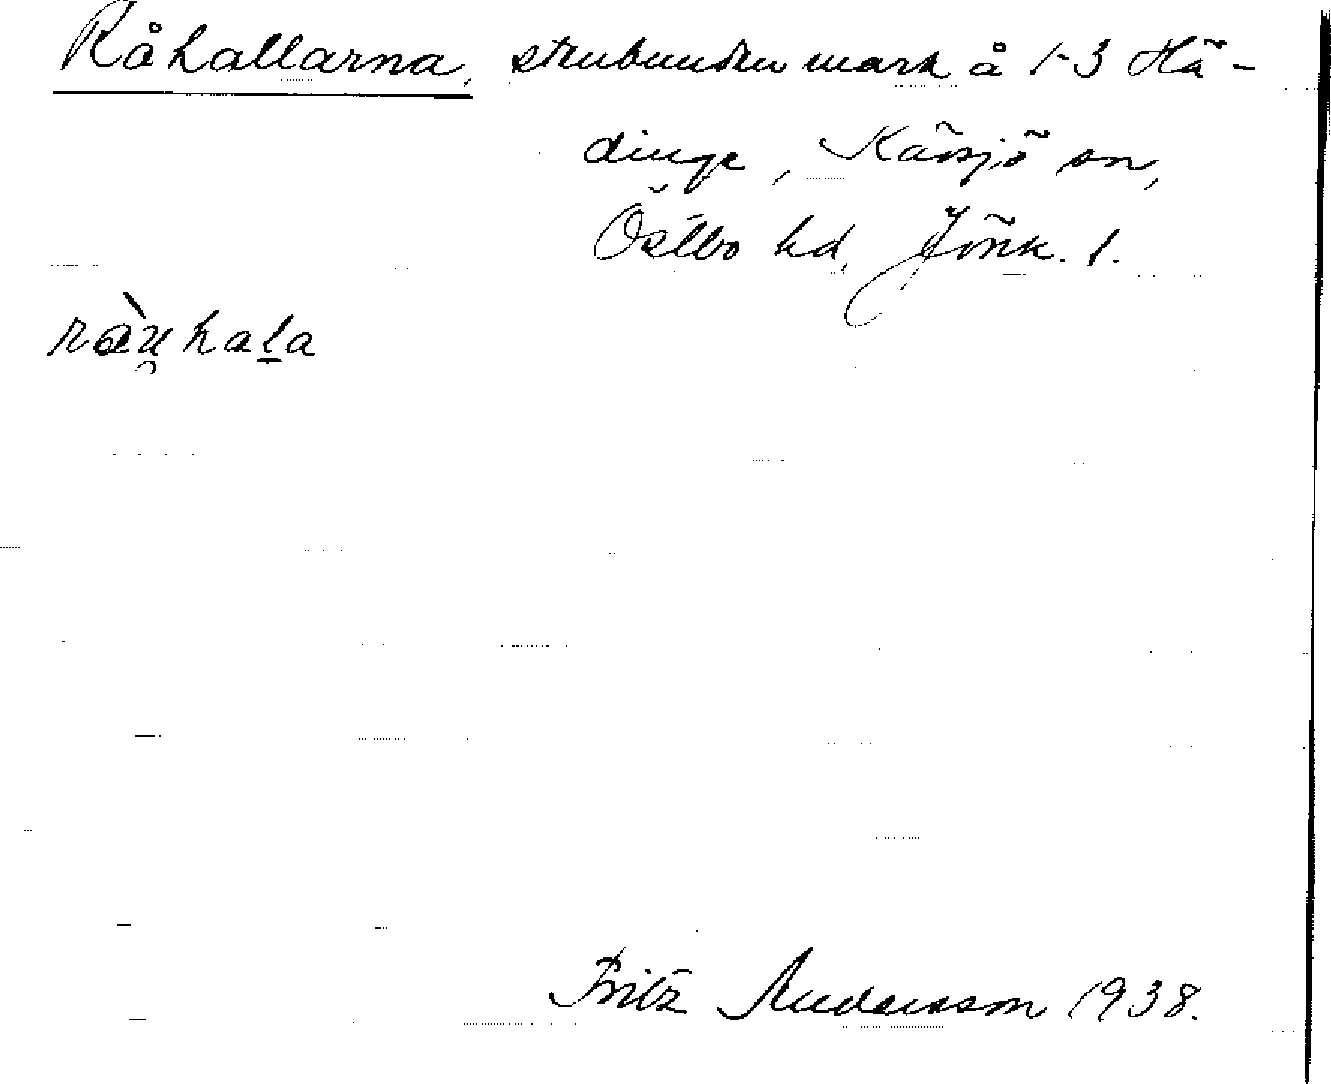 Råhallarna, stenbunden mark å 1-3 Hä-
dinge, Kävsjö sn,
Östbo hd, Jönk. l.
ràu̯haḷa
Fritz Andersson 1938.